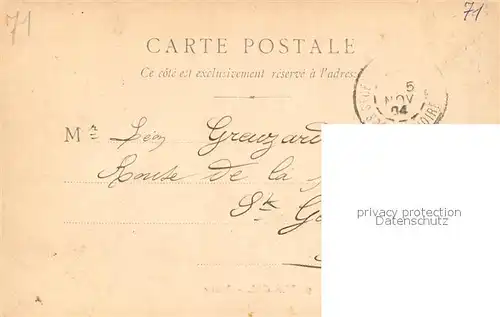 71
71
CARTE POSTALE
Ce côté est exclusivement réservé à l'adres
5
NOV
04
OIRE
Mr Léon Greuzard
Route de la
St. G
privacy protection
Datenschutz